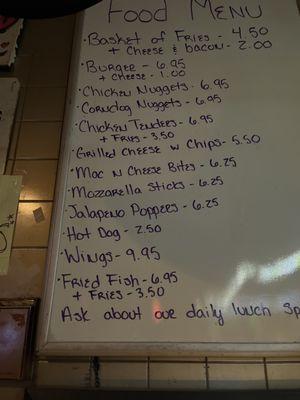 Food Menu
· Basket of Fries - 4.50
+ Cheese & bacon - 2.00
· Burger - 6.95
+ Cheese - 1.00
· Chicken Nuggets - 6.95
· Corndog Nuggets - 6.95
· Chicken Tenders - 6.95
+ Fries - 3.50
· Grilled Cheese w Chips - 5.50
· Mac n Cheese Bites - 6.25
· Mozzarella Sticks - 6.25
· Jalapeno Poppers - 6.25
· Hot Dog - 2.50
· Wings - 9.95
· Fried Fish - 6.95
+ Fries - 3.50
Ask about our daily lunch Sp